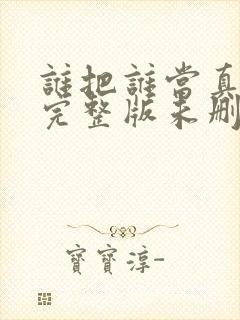 誰把誰當真
完整版未刪
寶寶淳-